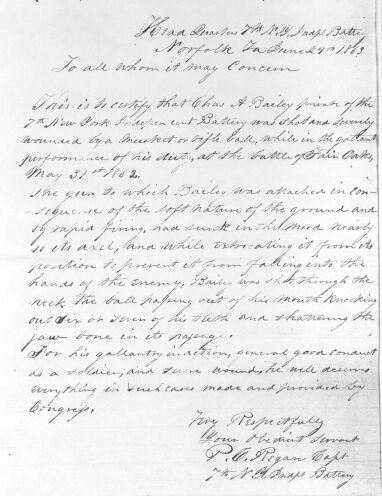 Head Quarters 7th N.Y. Indpt Battery
Norfolk Va June 29th 1863
To all whom it may Concern
This is to certify that Chas A Bailey private of the
7th New York Independent Battery was shot and severely
wounded by a musket or rifle ball, while in the gallant
performance of his duty, at the battle of Fair Oaks,
May 31st 1862.
The gun to which Bailey was attached in con-
sequense of the soft nature of the ground and
by rapid firing, had sunk in the mud nearly
to its axel, and while extricating it from its
position to prevent it from falling into the
hands of the enemy, Bailey was shot through the
neck the ball passing out of his mouth knocking
out six or seven of his teeth and shattering the
jaw bone in its passage.
For his gallantry in action, general good conduct
as a soldier, and severe wounds, he well deserves
everything in such cases made and provided by
Congress.
Very Respectfully
Your Obedient Servant
P. C. Regan Capt
7th N.Y. Indpt Battery